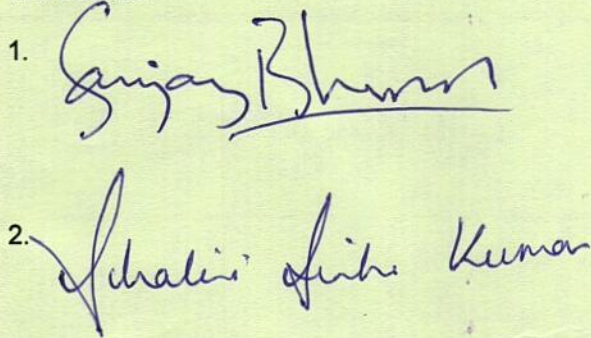 1. Sanjay
2. Shalini Sinha Kumar